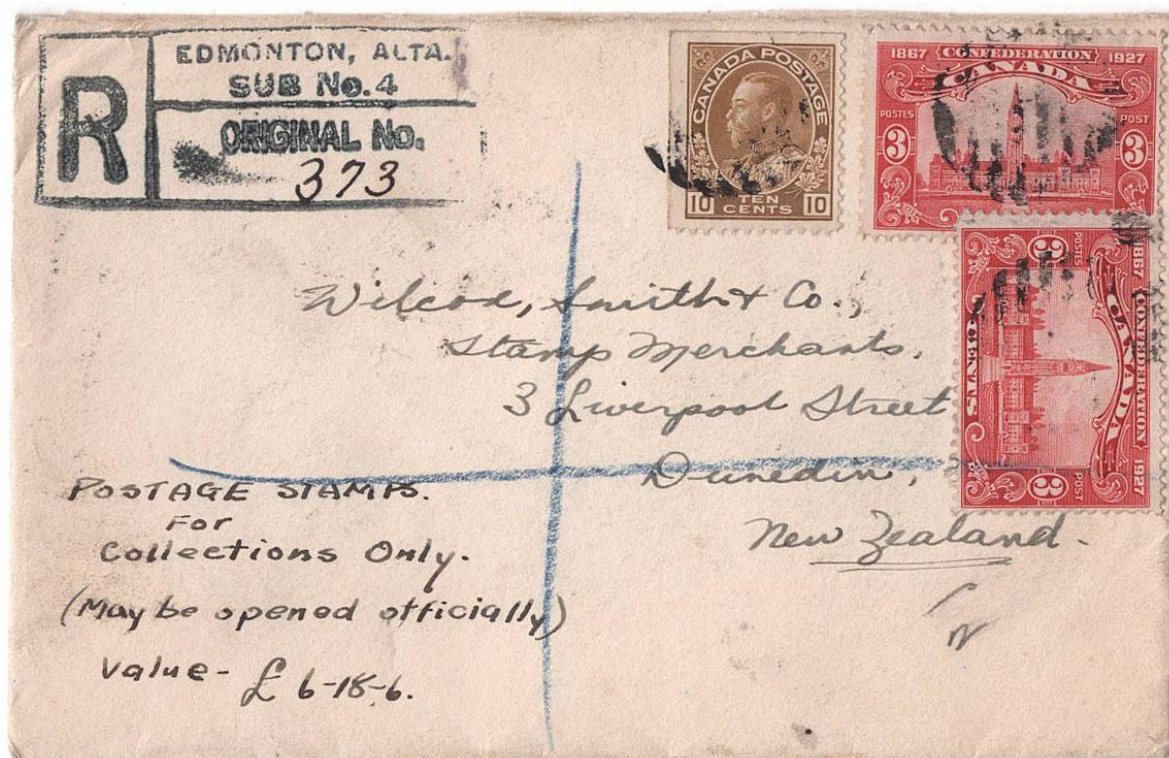 R
EDMONTON, ALTA.
SUB No. 4
ORIGINAL No.
373
CANADA POSTAGE
10 TEN CENTS 10
1867 CONFEDERATION 1927
CANADA
POSTES POST
3 3
1867 CONFEDERATION 1927
CANADA
POSTES POST
3 CENTS 3
Wilcox, Smith & Co.,
Stamp Merchants,
3 Liverpool Street
Dunedin,
New Zealand.
POSTAGE STAMPS.
For
Collections Only.
(May be opened officially)
Value - £ 6-18-6.